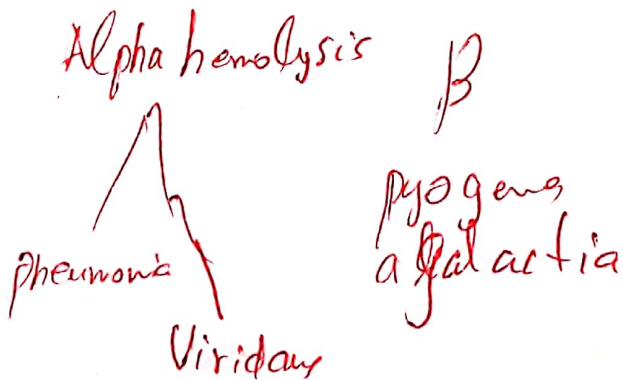 Alpha hemolysis
β
pneumonia
Viridans
pyogens
agalactia